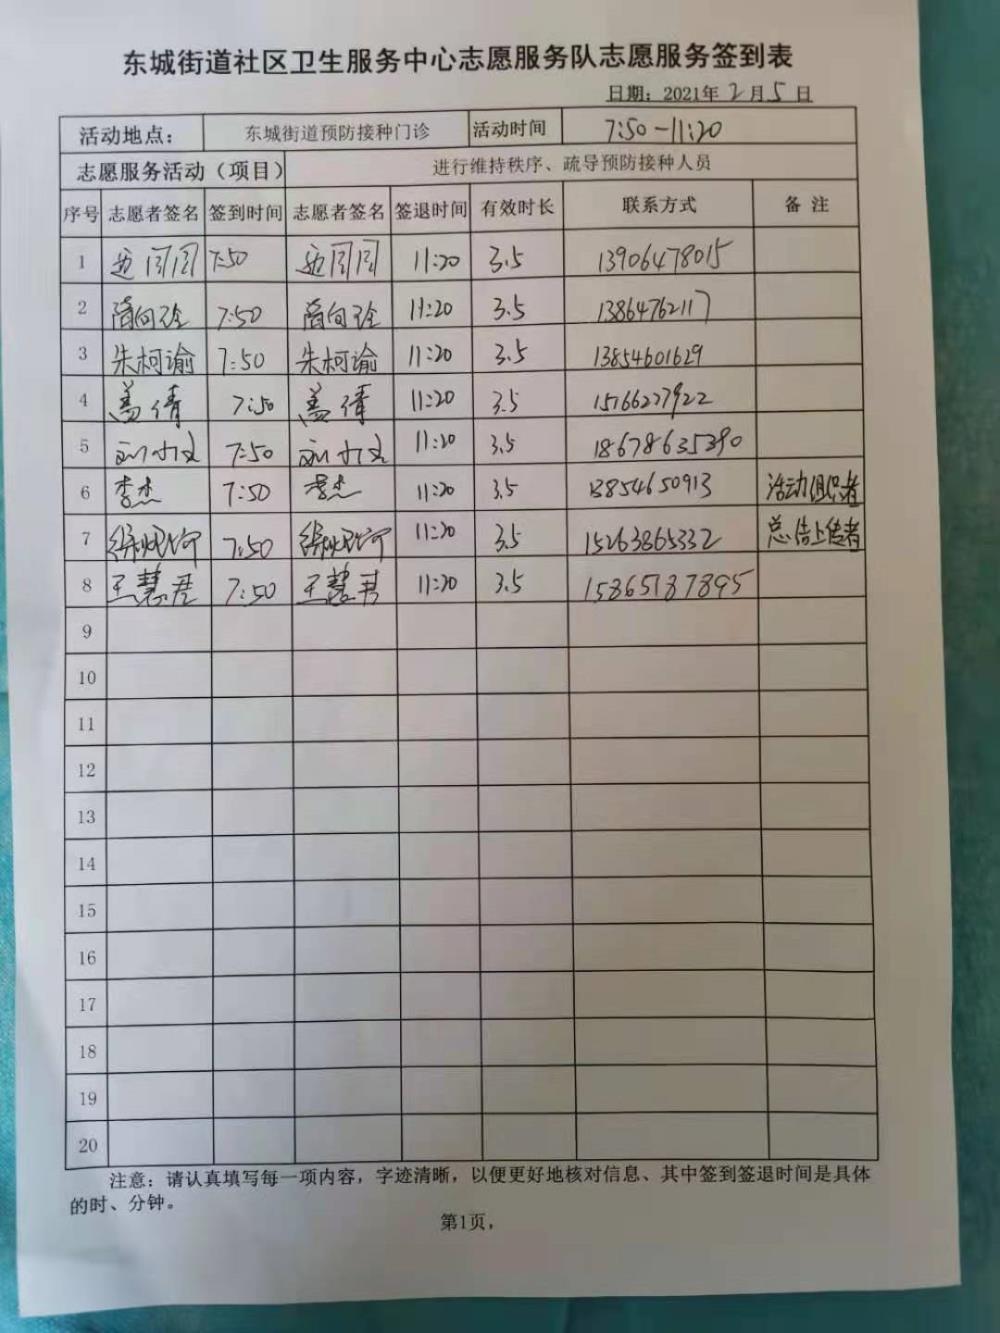 东城街道社区卫生服务中心志愿服务队志愿服务签到表
日期：2021年2月5日
活动地点： 东城街道预防接种门诊 活动时间 7:50-11:20
志愿服务活动（项目） 进行维持秩序、疏导预防接种人员
序号 志愿者签名 签到时间 志愿者签名 签退时间 有效时长 联系方式 备 注
1 7:50 11:20 3.5 13906478015
2 7:50 11:20 3.5 13864762117
3 朱柯谕 7:50 朱柯谕 11:20 3.5 13854601629
4 盖倩 7:50 盖倩 11:20 3.5 15766227922
5 7:50 11:20 3.5 18678635390
6 李杰 7:50 李杰 11:20 3.5 13854650913 活动组织者
7 7:50 11:20 3.5 15263865332 总结上传者
8 王慧君 7:50 王慧君 11:20 3.5 15865187895
9
10
11
12
13
14
15
16
17
18
19
20
注意：请认真填写每一项内容，字迹清晰，以便更好地核对信息、其中签到签退时间是具体
的时、分钟。
第1页，